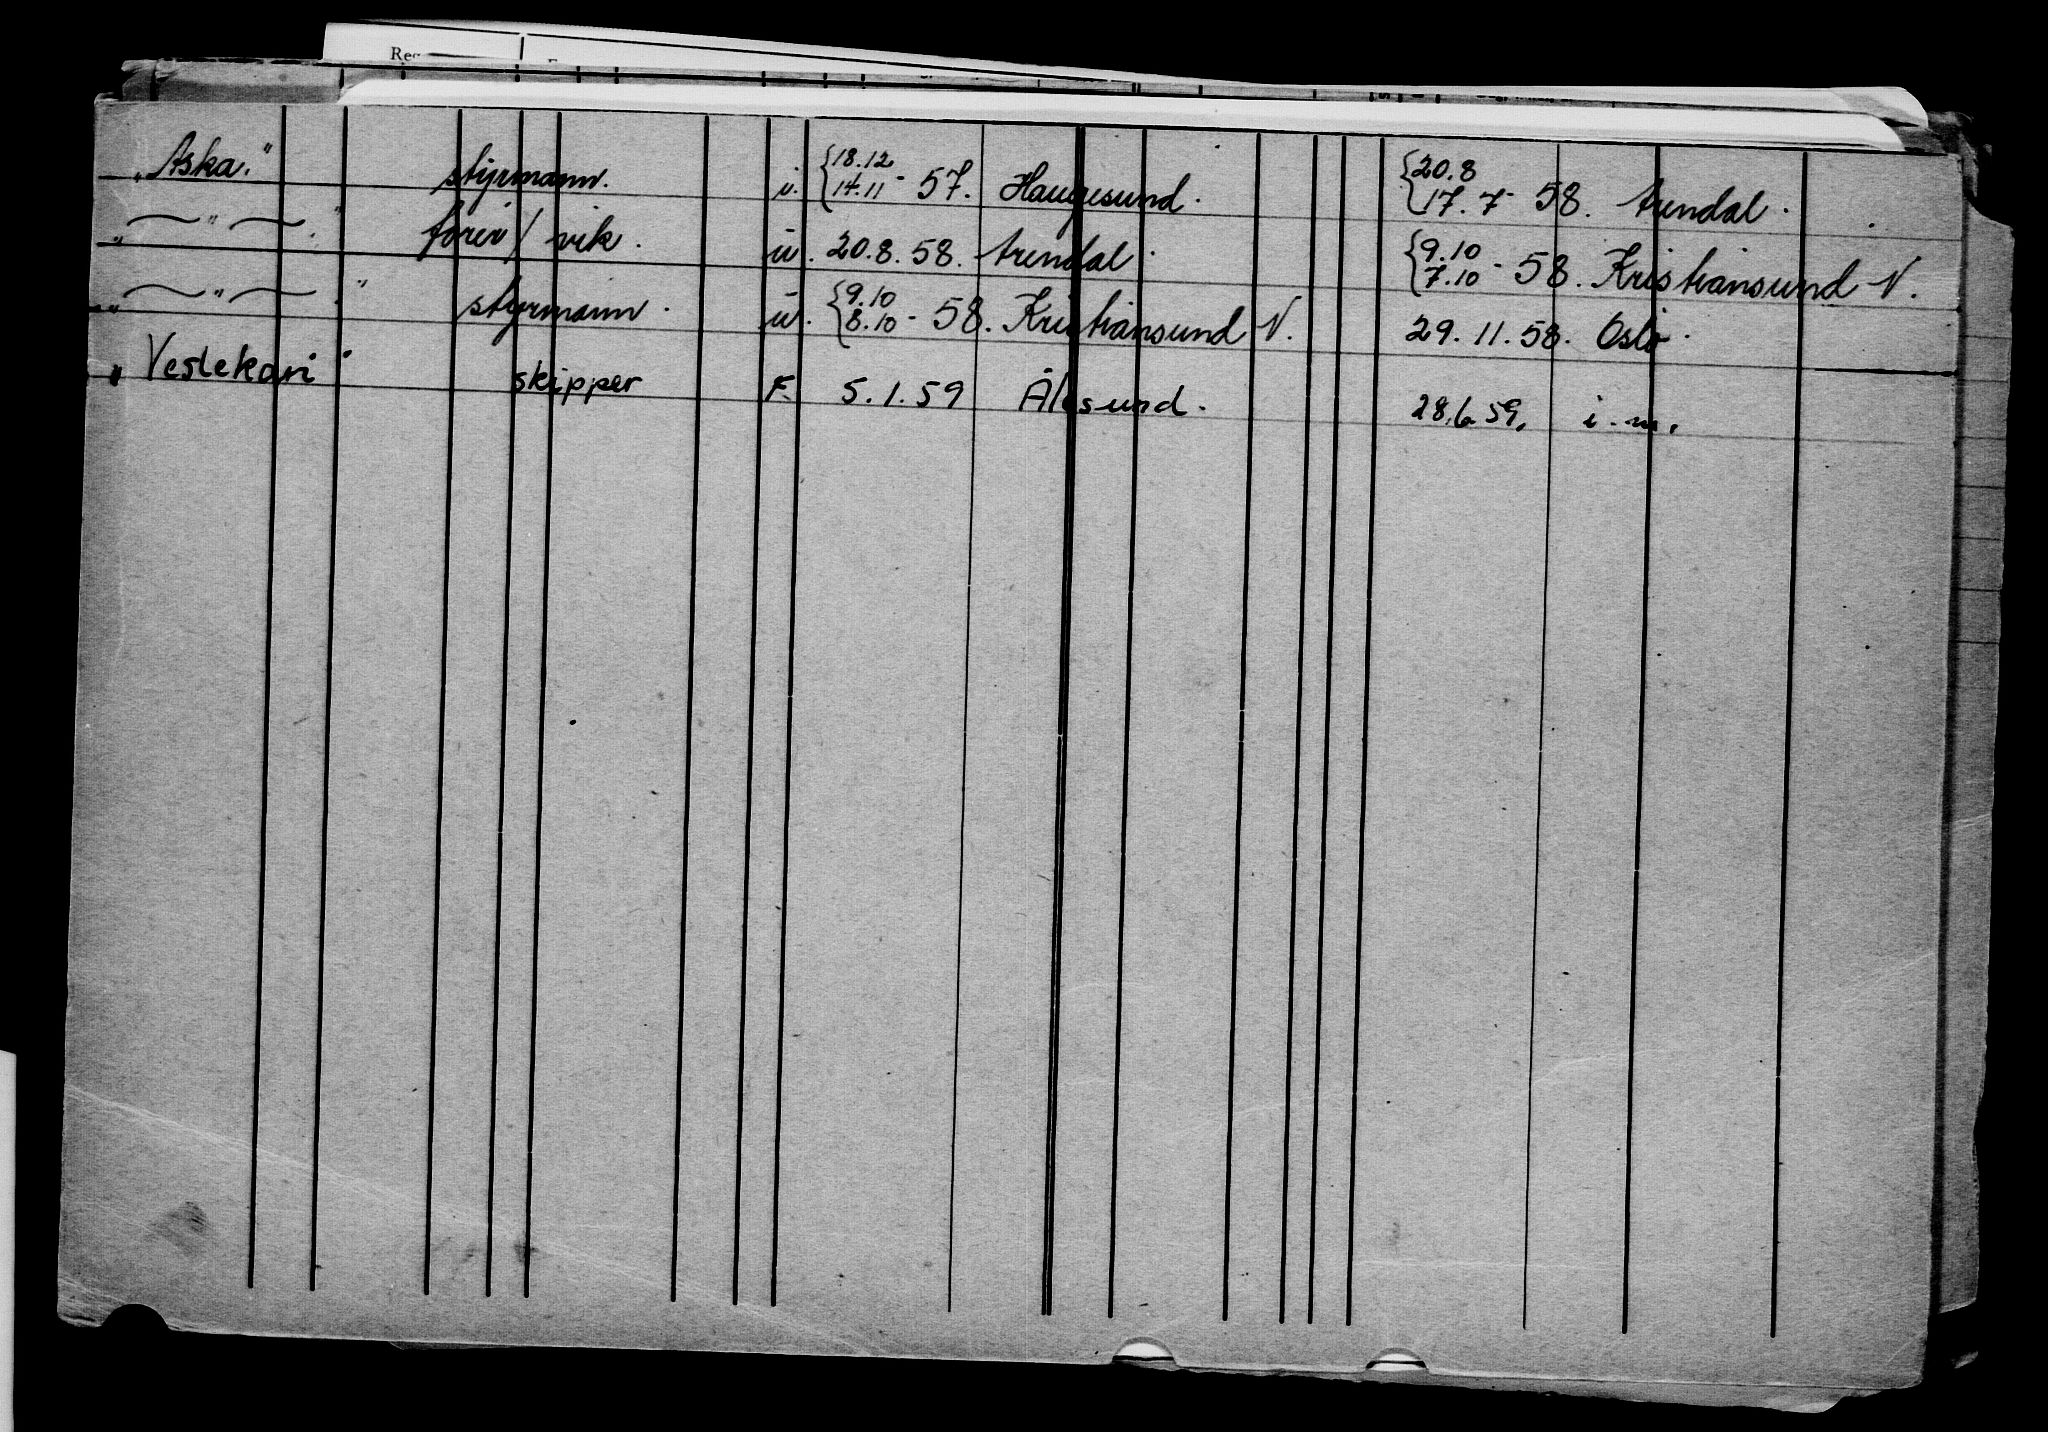 Reg
„Aska." styrmann. u. {18.12 14.11 - 57. Haugesund. {20.8 17.7 - 58. Arendal.
„ — " — ." fører / vik. u. 20.8.58. Arendal. {9.10 7.10 - 58. Kristiansund N.
„ — " — ." styrmann. u. {9.10 8.10 - 58. Kristiansund N. 29.11.58. Oslo.
„ Veslekari " skipper F. 5.1.59 Ålesund. 28.6.59. i.m.